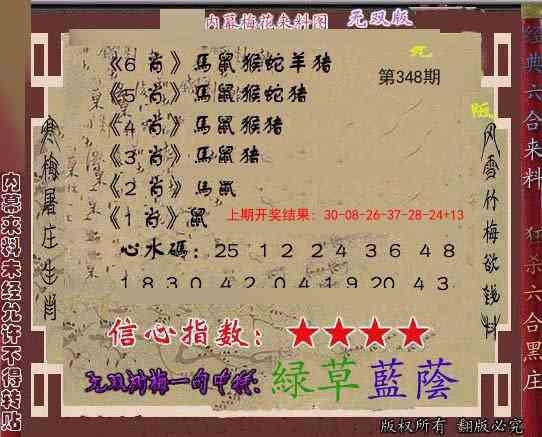 内幕梅花来料图 无双版
《6 肖》馬鼠猴蛇羊猪
第348期
《5 肖》馬鼠猴蛇猪
《4 肖》馬鼠猴猪
《3 肖》馬鼠猪
《2 肖》馬鼠
《1 肖》鼠
上期开奖结果: 30-08-26-37-28-24+13
心水碼: 25 12 24 36 48
18 30 42 04 19 20 43
信心指数: ★★★★
绿草藍蔭
寒梅屠庄生肖
风雪竹梅欲钱料
内幕来料未经允许不得转贴
经典六合来料 狂杀六合黑庄
版权所有 翻版必究